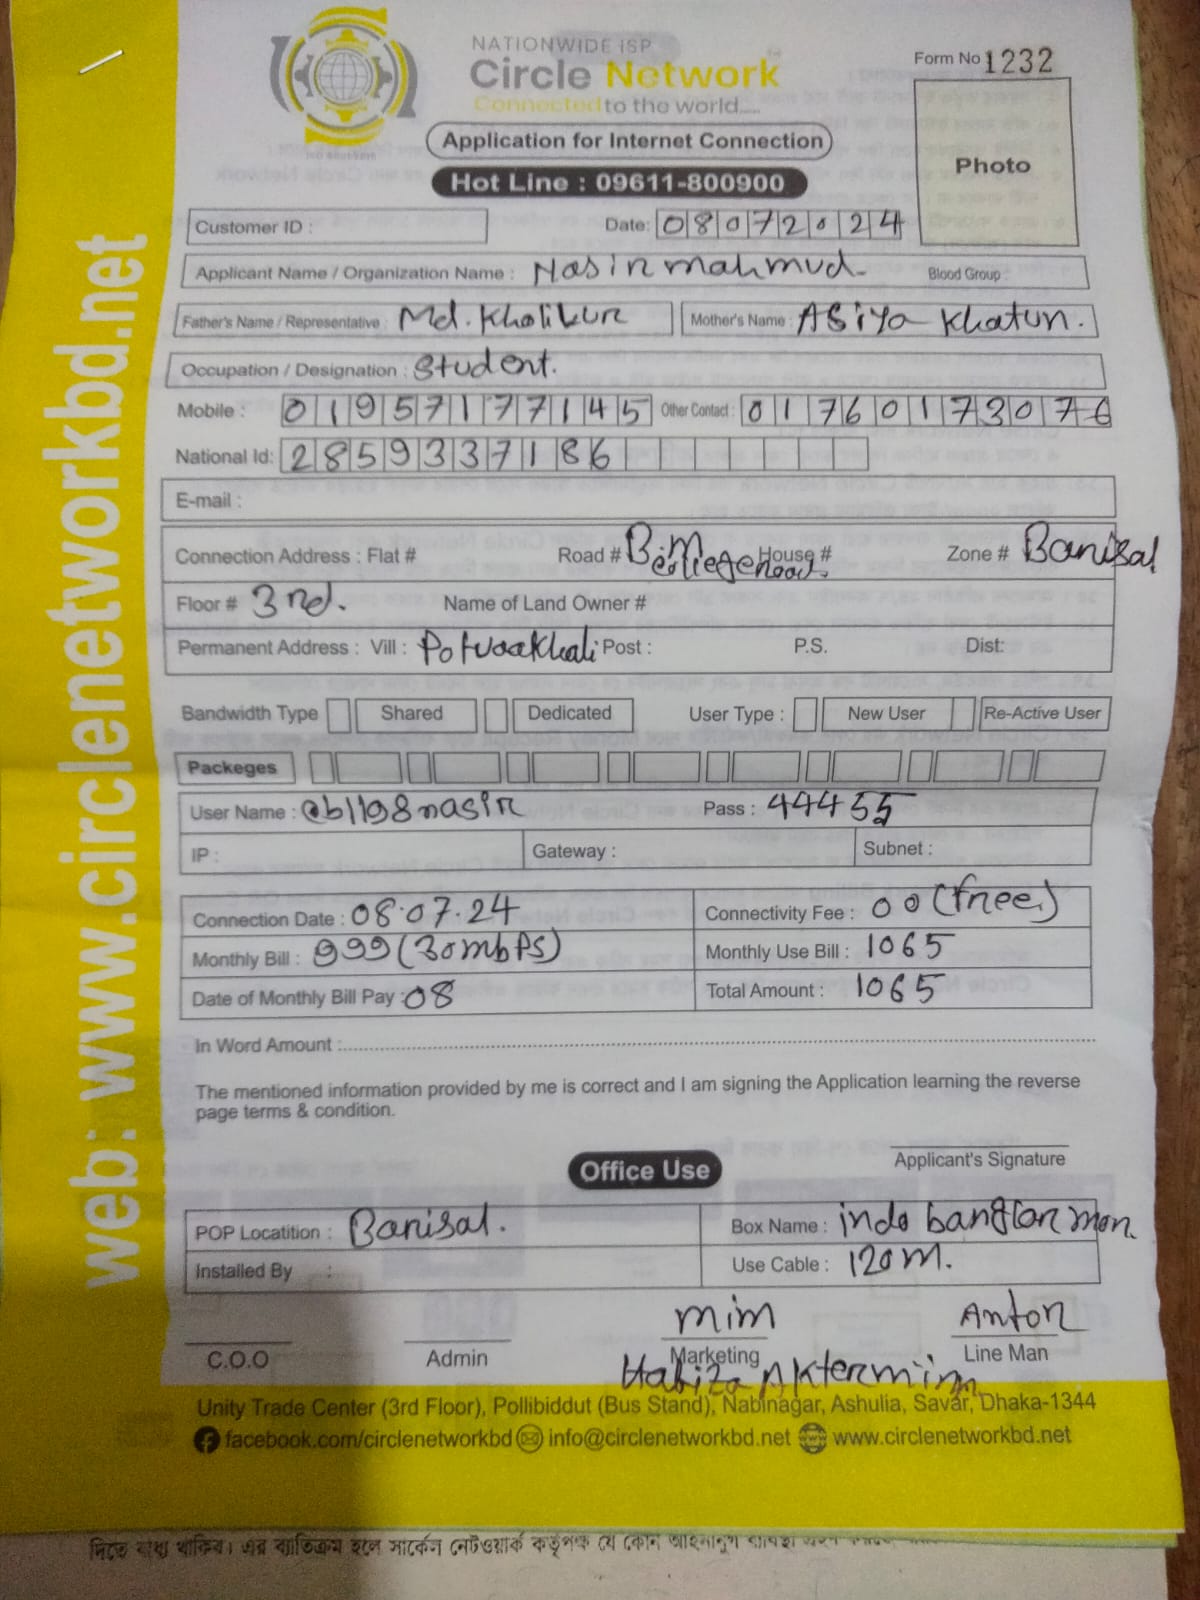 NATIONWIDE ISP
Circle Network
Connected to the world.....
Form No 1232
Application for Internet Connection
Photo
Hot Line : 09611-800900
Customer ID :
Date: 08072024
Applicant Name / Organization Name : Nasir mahmud. Blood Group :
Father's Name / Representative : Md. Khalikur Mother's Name : ASiya Khatun.
Occupation / Designation : Student.
Mobile : 01957177145 Other Contact : 01760173076
National Id: 2859337186
E-mail :
Connection Address : Flat # Road # B.m college Road. House # Zone # Barisal
Floor # 3rd. Name of Land Owner #
Permanent Address : Vill : Potuaakhali Post : P.S. Dist:
Bandwidth Type Shared Dedicated User Type : New User Re-Active User
Packeges
User Name : @b1198nasir Pass : 44455
IP : Gateway : Subnet :
Connection Date : 08.07.24 Connectivity Fee : 00 (free)
Monthly Bill : 999 (30mbPS) Monthly Use Bill : 1065
Date of Monthly Bill Pay : 08 Total Amount : 1065
In Word Amount :
The mentioned information provided by me is correct and I am signing the Application learning the reverse
page terms & condition.
Applicant's Signature
Office Use
POP Locatition : Barisal. Box Name : indo bangla mor.
Installed By : Use Cable : 120m.
mim Anton
C.O.O Admin Marketing Line Man
Habiza Akter mim
Unity Trade Center (3rd Floor), Pollibiddut (Bus Stand), Nabinagar, Ashulia, Savar, Dhaka-1344
facebook.com/circlenetworkbd info@circlenetworkbd.net www.circlenetworkbd.net
web: www.circlenetworkbd.net
দিতে বাধ্য থাকিব। এর ব্যতিক্রম হলে সার্কেল নেটওয়ার্ক কর্তৃপক্ষ যে কোন আইনানুগ